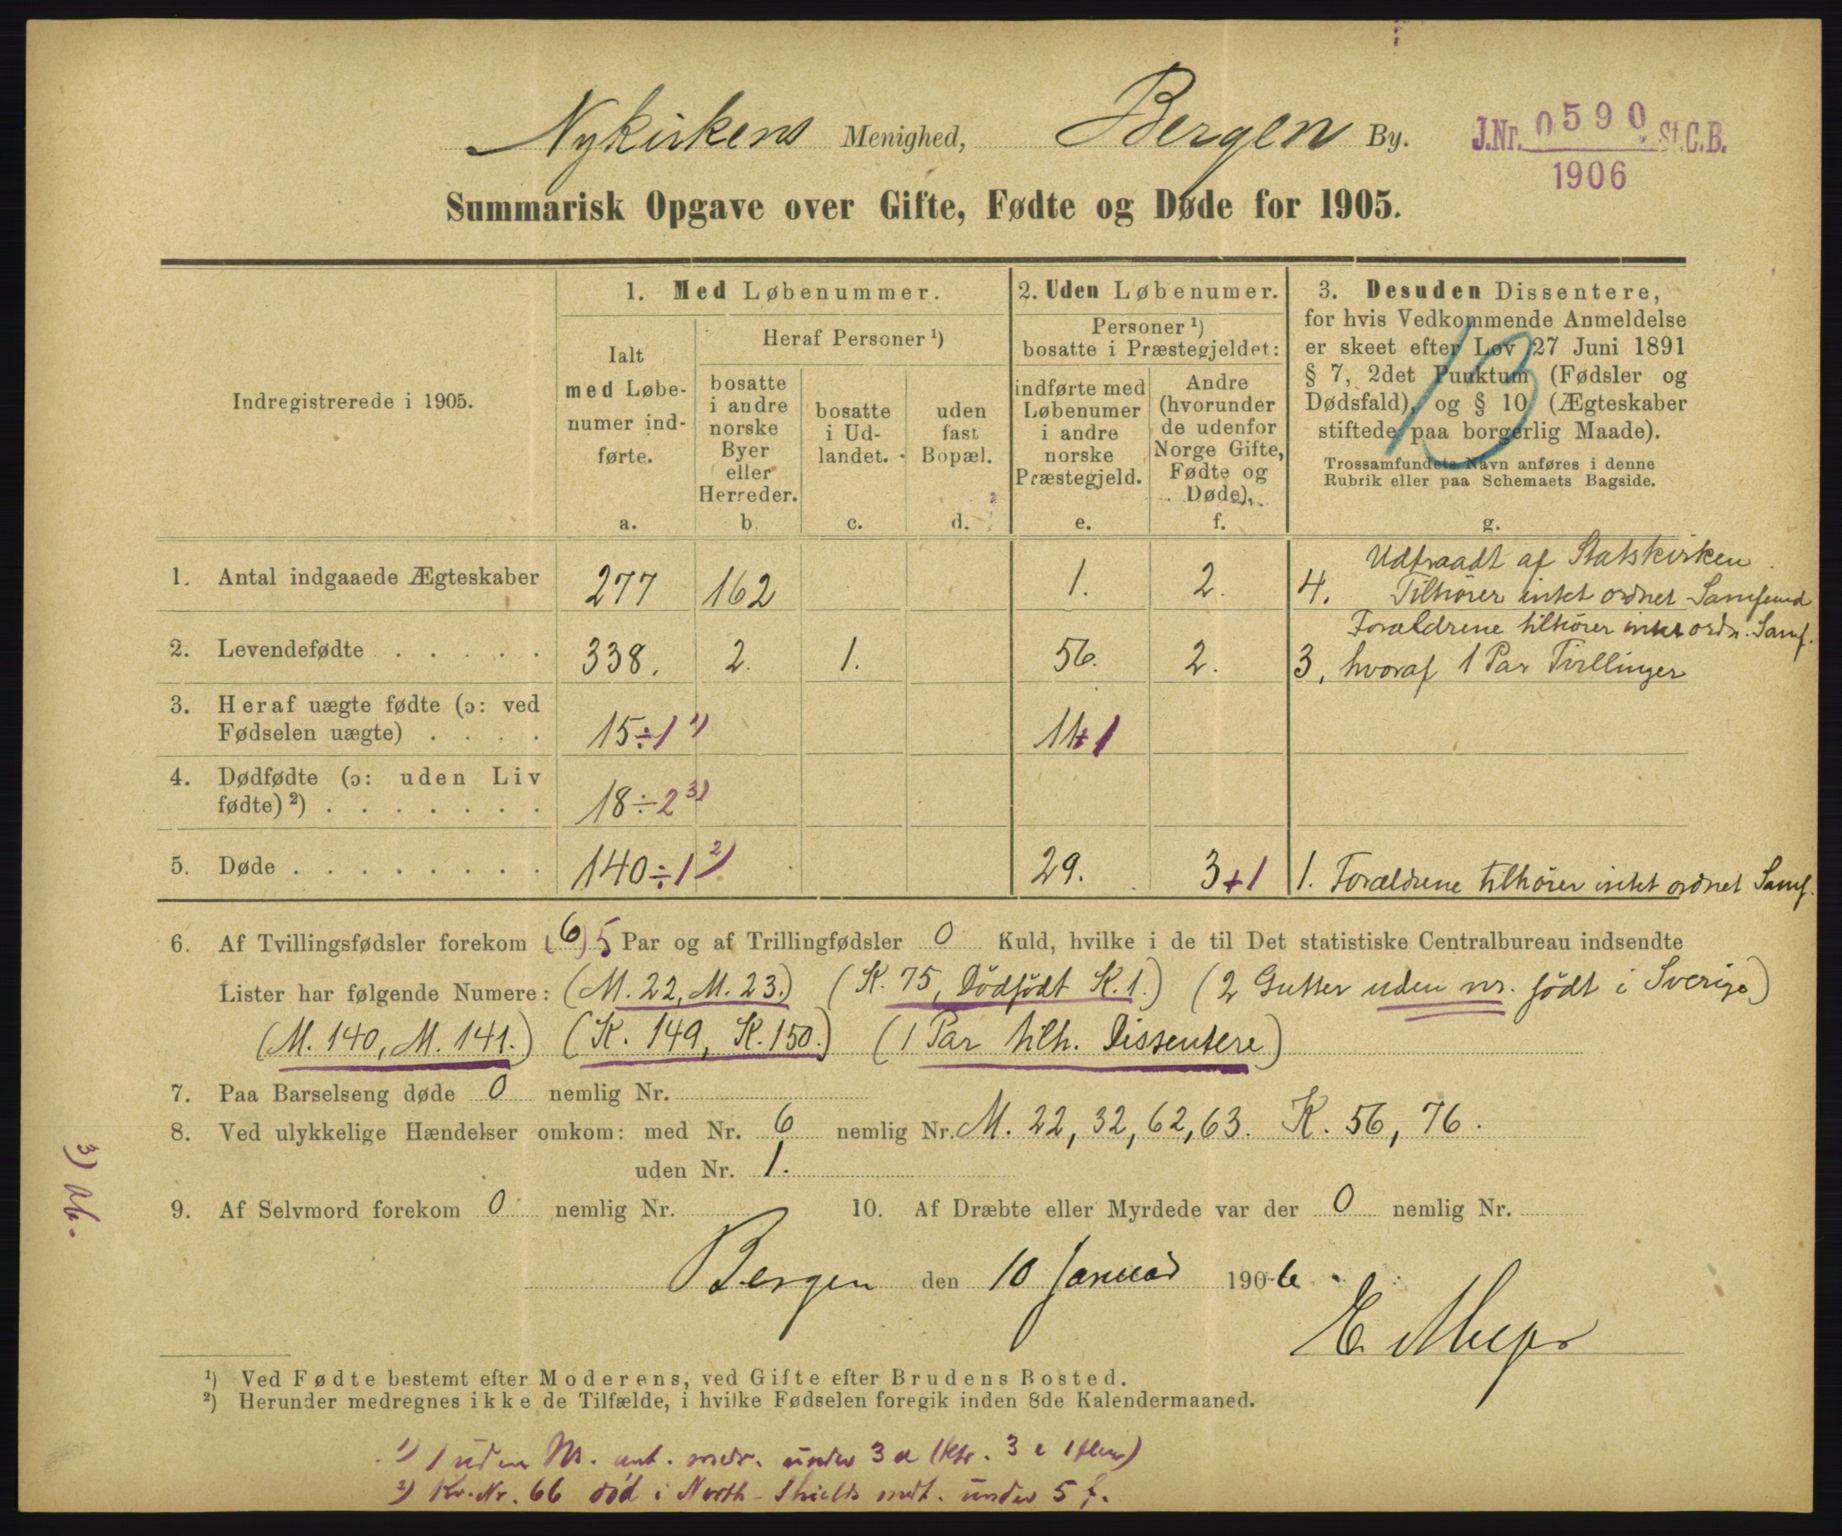 Nykirkens Menighed, Bergen By.
J.Nr. 0590 St.C.B.
1906
Summarisk Opgave over Gifte, Fødte og Døde for 1905.
Indregistrerede i 1905.
1. Med Løbenummer.
Ialt
med Løbe-
numer ind-
førte.
a.
Heraf Personer ¹)
bosatte
i andre
norske
Byer
eller
Herreder.
b.
bosatte
i Ud-
landet.
c.
uden
fast
Bopæl.
d.
2. Uden Løbenumer.
Personer ¹)
bosatte i Præstegjeldet:
indførte med
Løbenumer
i andre
norske
Præstegjeld.
e.
Andre
(hvorunder
de udenfor
Norge Gifte,
Fødte og
Døde).
f.
3. Desuden Dissentere,
for hvis Vedkommende Anmeldelse
er skeet efter Lov 27 Juni 1891
§ 7, 2det Punktum (Fødsler og
Dødsfald), og § 10 (Ægteskaber
stiftede paa borgerlig Maade).
Trossamfundets Navn anføres i denne
Rubrik eller paa Schemaets Bagside.
g.
Udtraadt af Statskirken.
1. Antal indgaaede Ægteskaber 277 162 1. 2. 4. Tilhører intet ordnet Samfund
Forældrene tilhører intet ordn. Samf.
2. Levendefødte . . . . . 338. 2. 1. 56. 2. 3, hvoraf 1 Par Tvillinger
3. Heraf uægte fødte (ɔ: ved
Fødselen uægte) . . . . 15÷1 ¹) 11+1
4. Dødfødte (ɔ: uden Liv
fødte) ²) . . . . . . . 18÷2 ³)
5. Døde . . . . . . . . 140÷1 ²) 29. 3+1 1. Forældrene tilhører intet ordnet Samf.
6. Af Tvillingsfødsler forekom (6) 5 Par og af Trillingfødsler 0 Kuld, hvilke i de til Det statistiske Centralbureau indsendte
Lister har følgende Numere: (M. 22, M. 23.) (K. 75, Dødfødt K. 1.) (2 Gutter uden nr. født i Sverige)
(M. 140, M. 141.) (K. 149, K. 150.) (1 Par tilh. Dissentere)
7. Paa Barselseng døde 0 nemlig Nr.
8. Ved ulykkelige Hændelser omkom: med Nr. 6 nemlig Nr. M. 22, 32, 62, 63. K. 56, 76.
uden Nr. 1.
9. Af Selvmord forekom 0 nemlig Nr. 10. Af Dræbte eller Myrdede var der 0 nemlig Nr.
Bergen den 10 Januar 1906.
E.
¹) Ved Fødte bestemt efter Moderens, ved Gifte efter Brudens Bosted.
²) Herunder medregnes ikke de Tilfælde, i hvilke Fødselen foregik inden 8de Kalendermaaned.
¹) 1 uden Nr. ant. medr. under 3 a
²) Kv. Nr. 66 død i North-Shields medt. under 5 f.
3) Ab.